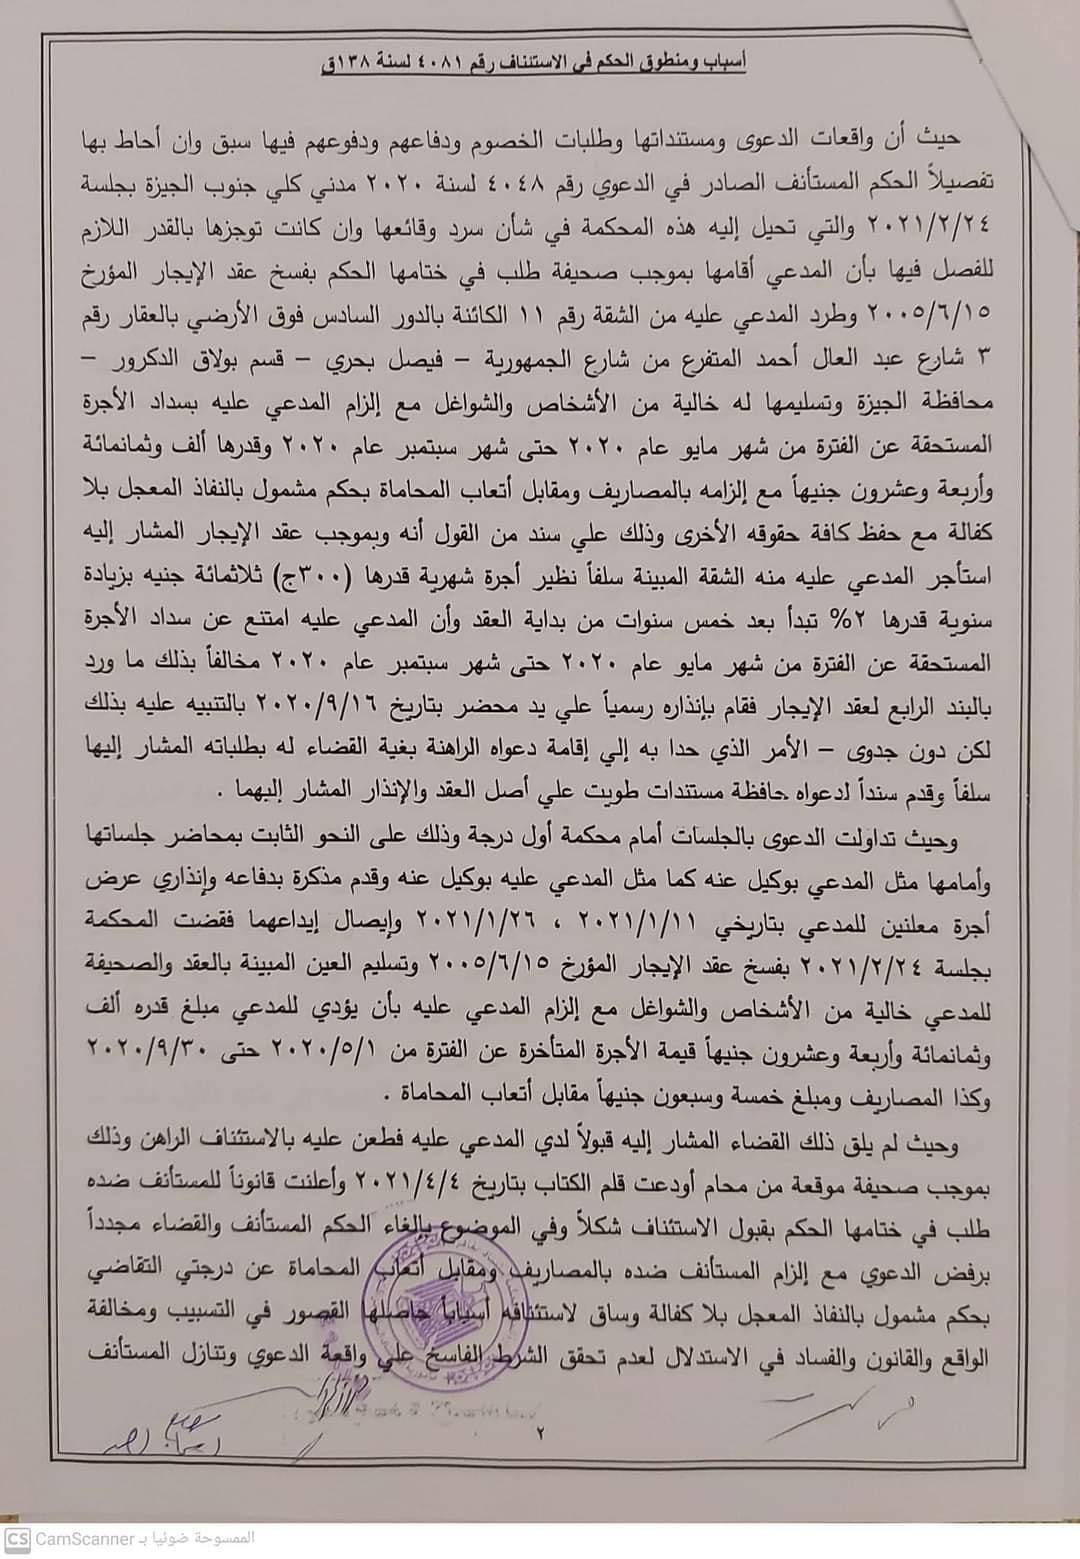 أسباب ومنطوق الحكم في الاستئناف رقم ٤٠٨١ لسنة ١٣٨ق
حيث أن واقعات الدعوى ومستنداتها وطلبات الخصوم ودفاعهم ودفوعهم فيها سبق وان أحاط بها
تفصيلاً الحكم المستأنف الصادر في الدعوي رقم ٤٠٤٨ لسنة ٢٠٢٠ مدني كلي جنوب الجيزة بجلسة
٢٠٢١/٢/٢٤ والتي تحيل إليه هذه المحكمة في شأن سرد وقائعها وان كانت توجزها بالقدر اللازم
للفصل فيها بأن المدعي أقامها بموجب صحيفة طلب في ختامها الحكم بفسخ عقد الإيجار المؤرخ
٢٠٠٥/٦/١٥ وطرد المدعي عليه من الشقة رقم ١١ الكائنة بالدور السادس فوق الأرضي بالعقار رقم
٣ شارع عبد العال أحمد المتفرع من شارع الجمهورية – فيصل بحري – قسم بولاق الدكرور –
محافظة الجيزة وتسليمها له خالية من الأشخاص والشواغل مع إلزام المدعي عليه بسداد الأجرة
المستحقة عن الفترة من شهر مايو عام ٢٠٢٠ حتى شهر سبتمبر عام ٢٠٢٠ وقدرها ألف وثمانمائة
وأربعة وعشرون جنيهاً مع إلزامه بالمصاريف ومقابل أتعاب المحاماة بحكم مشمول بالنفاذ المعجل بلا
كفالة مع حفظ كافة حقوقه الأخرى وذلك علي سند من القول أنه وبموجب عقد الإيجار المشار إليه
استأجر المدعي عليه منه الشقة المبينة سلفاً نظير أجرة شهرية قدرها (٣٠٠ج) ثلاثمائة جنيه بزيادة
سنوية قدرها ٢% تبدأ بعد خمس سنوات من بداية العقد وأن المدعي عليه امتنع عن سداد الأجرة
المستحقة عن الفترة من شهر مايو عام ٢٠٢٠ حتى شهر سبتمبر عام ٢٠٢٠ مخالفاً بذلك ما ورد
بالبند الرابع لعقد الإيجار فقام بإنذاره رسمياً علي يد محضر بتاريخ ٢٠٢٠/٩/١٦ بالتنبيه عليه بذلك
لكن دون جدوى – الأمر الذي حدا به إلي إقامة دعواه الراهنة بغية القضاء له بطلباته المشار إليها
سلفاً وقدم سنداً لدعواه حافظة مستندات طويت علي أصل العقد والإنذار المشار إليهما .
وحيث تداولت الدعوى بالجلسات أمام محكمة أول درجة وذلك على النحو الثابت بمحاضر جلساتها
وأمامها مثل المدعي بوكيل عنه كما مثل المدعي عليه بوكيل عنه وقدم مذكرة بدفاعه وإنذاري عرض
أجرة معلنين للمدعي بتاريخي ٢٠٢١/١/١١ ، ٢٠٢١/١/٢٦ وإيصال إيداعهما فقضت المحكمة
بجلسة ٢٠٢١/٢/٢٤ بفسخ عقد الإيجار المؤرخ ٢٠٠٥/٦/١٥ وتسليم العين المبينة بالعقد والصحيفة
للمدعي خالية من الأشخاص والشواغل مع إلزام المدعي عليه بأن يؤدي للمدعي مبلغ قدره ألف
وثمانمائة وأربعة وعشرون جنيهاً قيمة الأجرة المتأخرة عن الفترة من ٢٠٢٠/٥/١ حتى ٢٠٢٠/٩/٣٠
وكذا المصاريف ومبلغ خمسة وسبعون جنيهاً مقابل أتعاب المحاماة .
وحيث لم يلق ذلك القضاء المشار إليه قبولاً لدي المدعي عليه فطعن عليه بالاستئناف الراهن وذلك
بموجب صحيفة موقعة من محام أودعت قلم الكتاب بتاريخ ٢٠٢١/٤/٤ وأعلنت قانوناً للمستأنف ضده
طلب في ختامها الحكم بقبول الاستئناف شكلاً وفي الموضوع بإلغاء الحكم المستأنف والقضاء مجدداً
برفض الدعوي مع إلزام المستأنف ضده بالمصاريف ومقابل أتعاب المحاماة عن درجتي التقاضي
بحكم مشمول بالنفاذ المعجل بلا كفالة وساق لاستئنافه أسباباً حاصلها القصور في التسبيب ومخالفة
الواقع والقانون والفساد في الاستدلال لعدم تحقق الشرط الفاسخ علي واقعة الدعوي وتنازل المستأنف
٢
CS CamScanner الممسوحة ضوئيا بـ